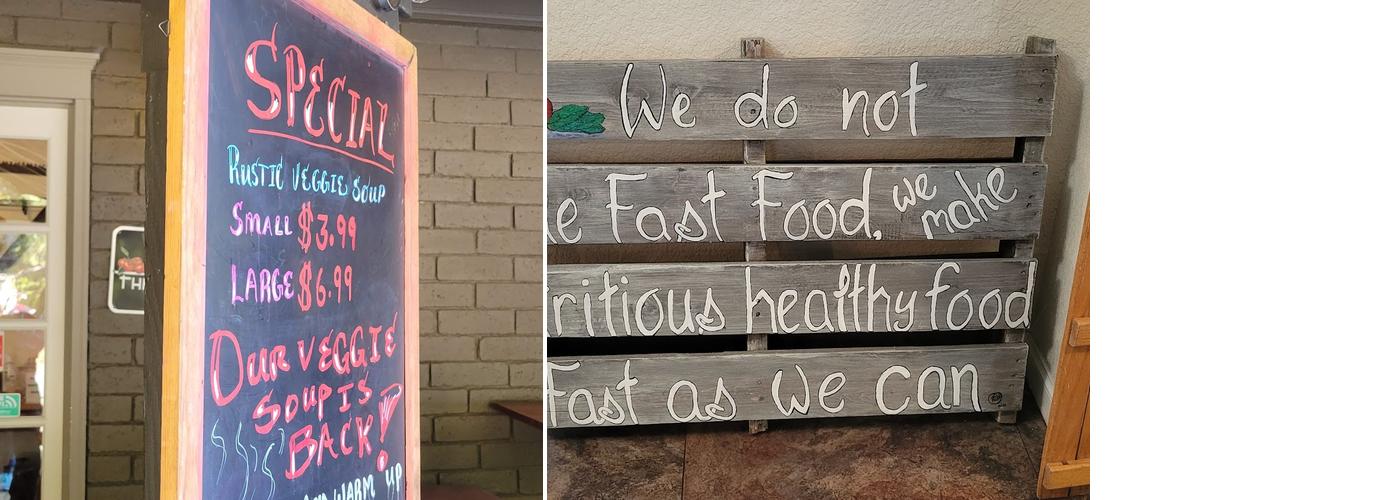 SPECIAL
RUSTIC VEGGIE SOUP
SMALL $3.99
LARGE $6.99
OUR VEGGIE
SOUP IS
BACK!
WARM UP
We do not
Fast Food, we make
healthy food
Fast as we can